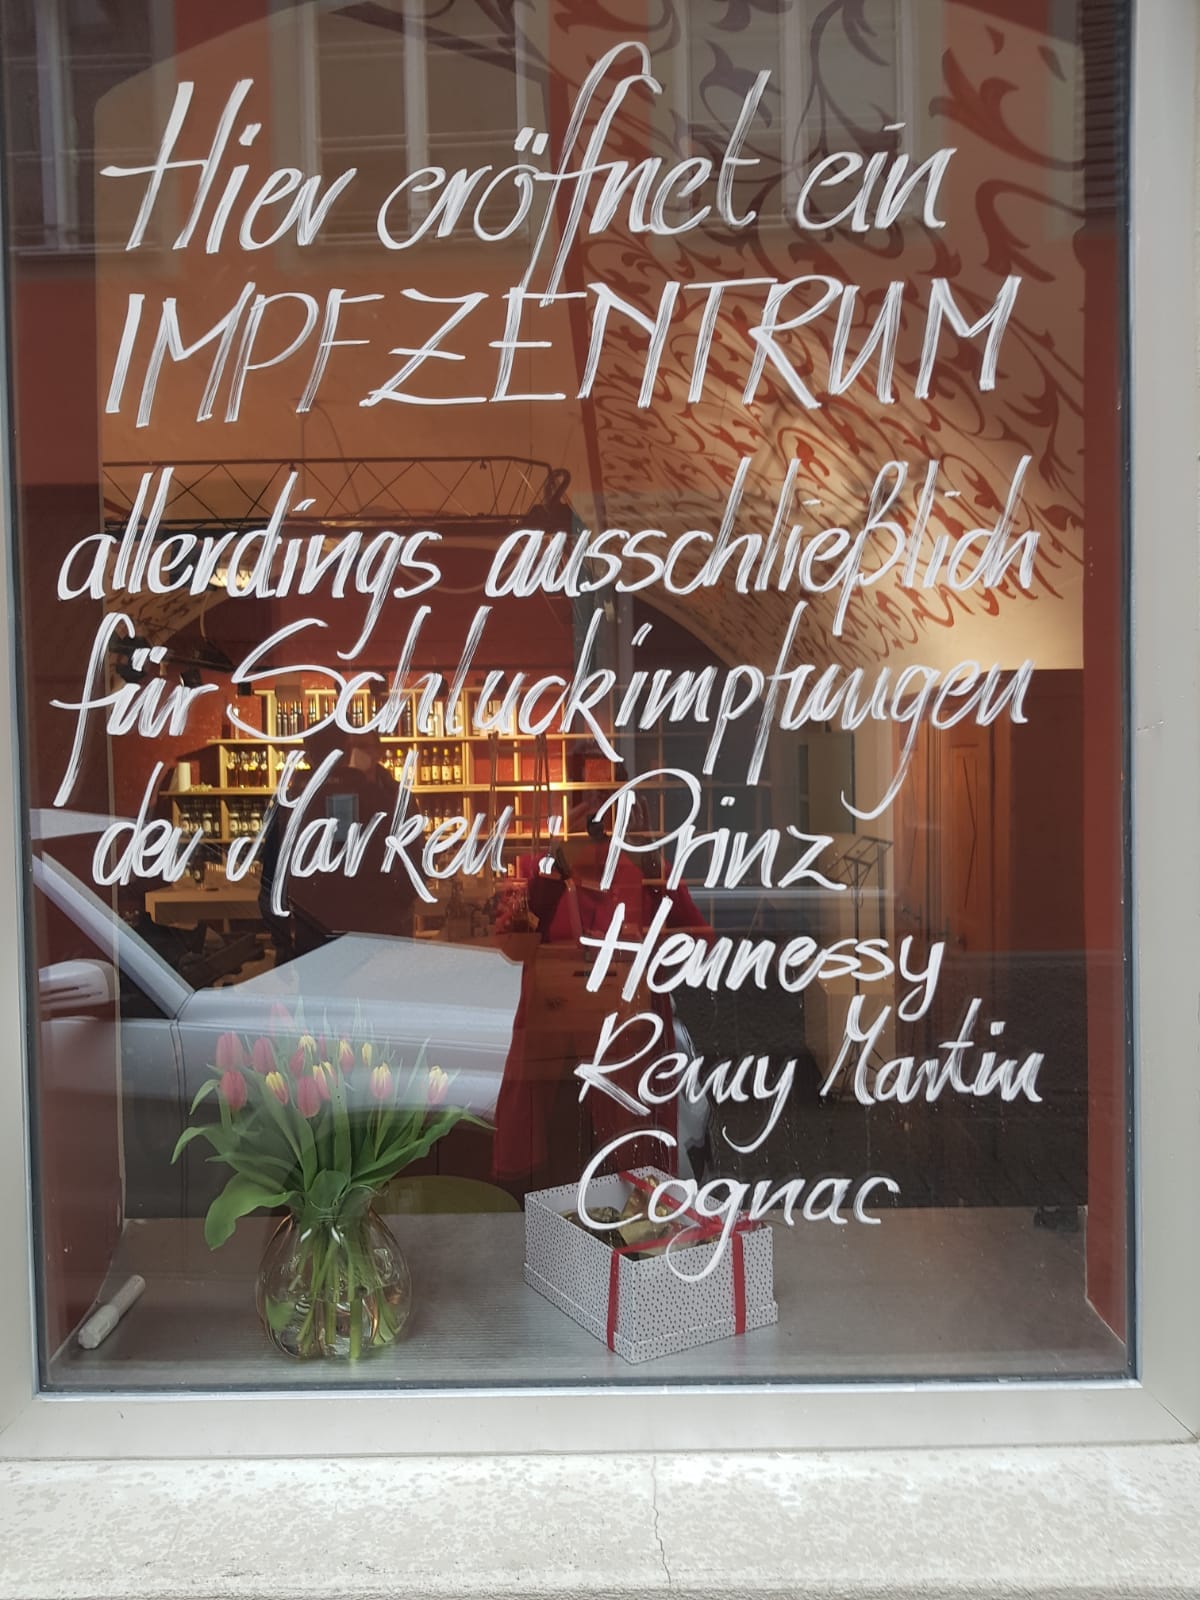 Hier eröffnet ein
IMPFZENTRUM
allerdings ausschließlich
für Schluckimpfungen
der Marken: Prinz
Hennessy
Remy Martin
Cognac